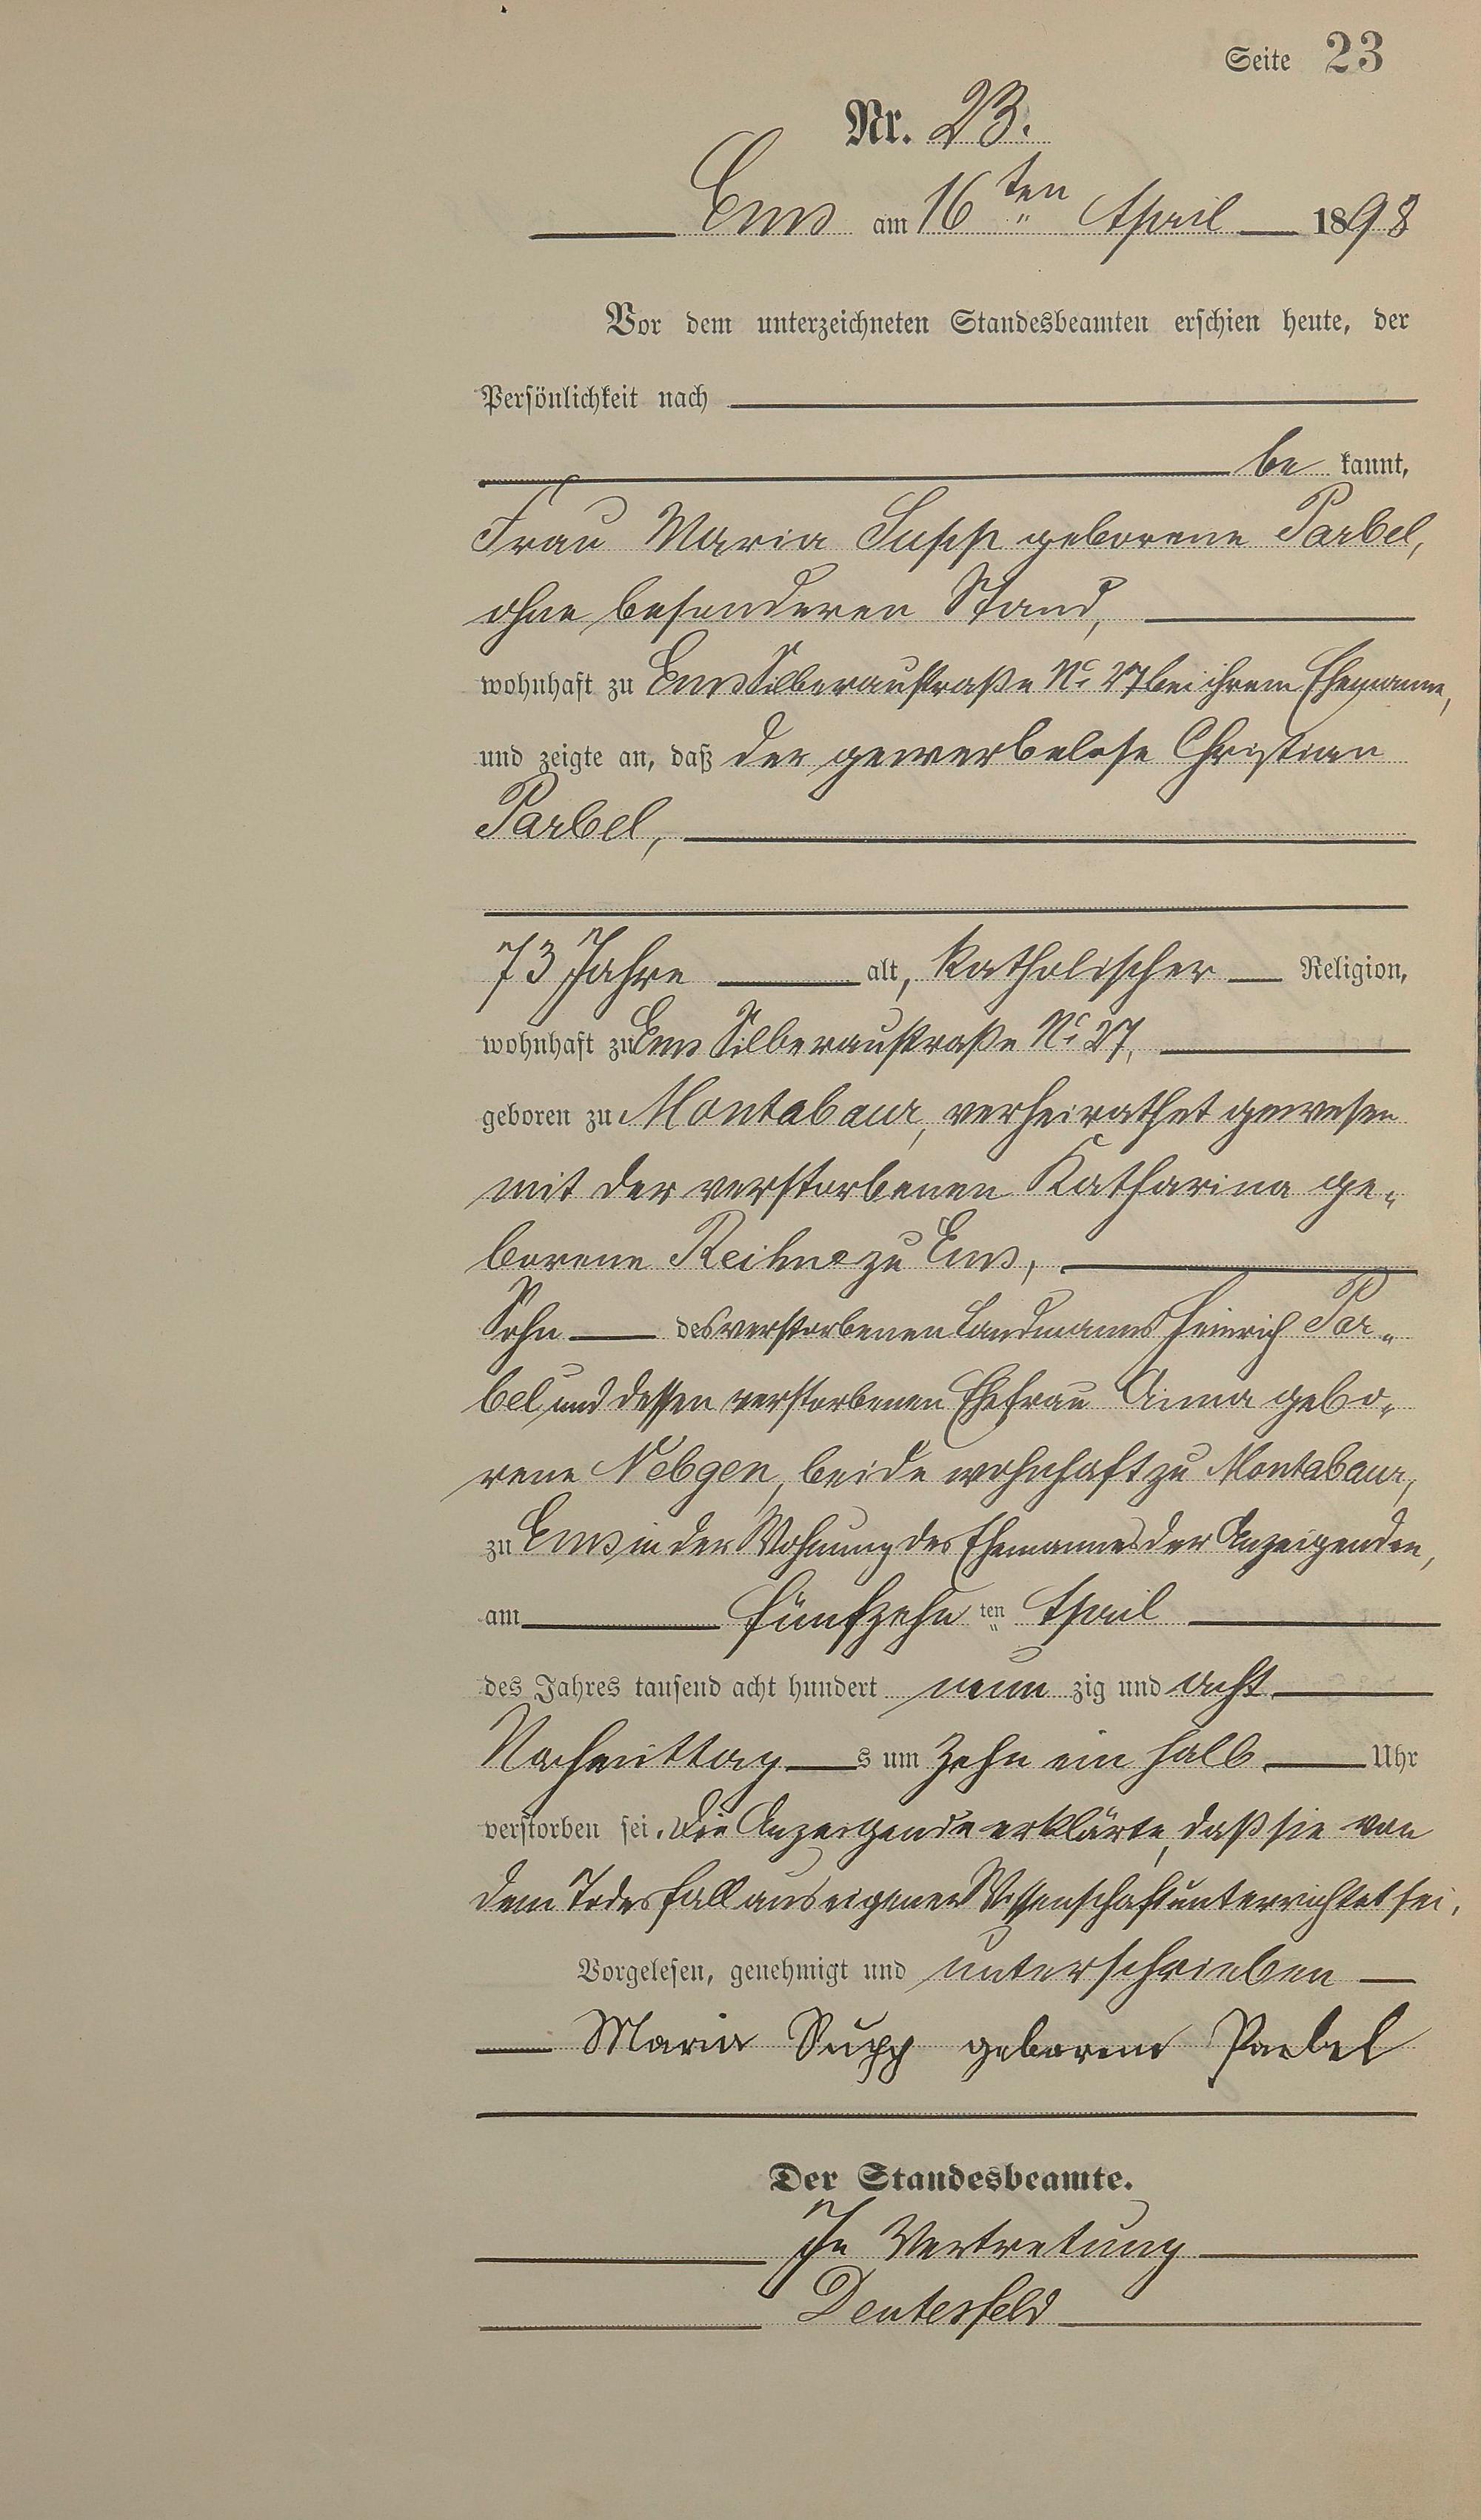 Seite 23
Nr. 23.
Ems am 16 ten April 1898
Vor dem unterzeichneten Standesbeamten erschien heute, der
Persönlichkeit nach
be kannt,
Frau Maria Supp geborene Parbel,
ohne besonderen Stand,
wohnhaft zu Ems Silberaustraße No 27 bei ihrem Ehemanne,
und zeigte an, daß der gewerbelose Christian
Parbel,
73 Jahre alt, katholischer Religion,
wohnhaft zu Ems Silberaustraße No 27,
geboren zu Montabaur, verheirathet gewesen
mit der verstorbenen Katharina ge-
borene zu Ems,
Sohn des verstorbenen Landmanns Heinrich Par-
bel und dessen verstorbenen Ehefrau Anna gebo-
rene Nebgen, beide wohnhaft zu Montabaur,
zu Ems in der Wohnung des Ehemannes der Anzeigenden,
am fünfzehn ten April
des Jahres tausend acht hundert neun zig und acht
Nachmittag s um zehn ein halb Uhr
verstorben sei. Die Anzeigende erklärte, daß sie von
dem Todesfall aus eigener Wissenschaft unterrichtet sei.
Vorgelesen, genehmigt und unterschrieben
Maria Supp geborene Parbel
Der Standesbeamte.
In Vertretung
Deutesfeld